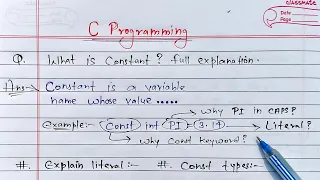 classmate
Date
Page
C Programming
Q. What is Constant? full explanation.
Ans:→ Constant is a variable
name whose value .....
→ why PI in CAPS?
Example:- Const int PI = (3.14) → Literal?
→ why Const keyword?
#. Explain literal:- #. Const types:-